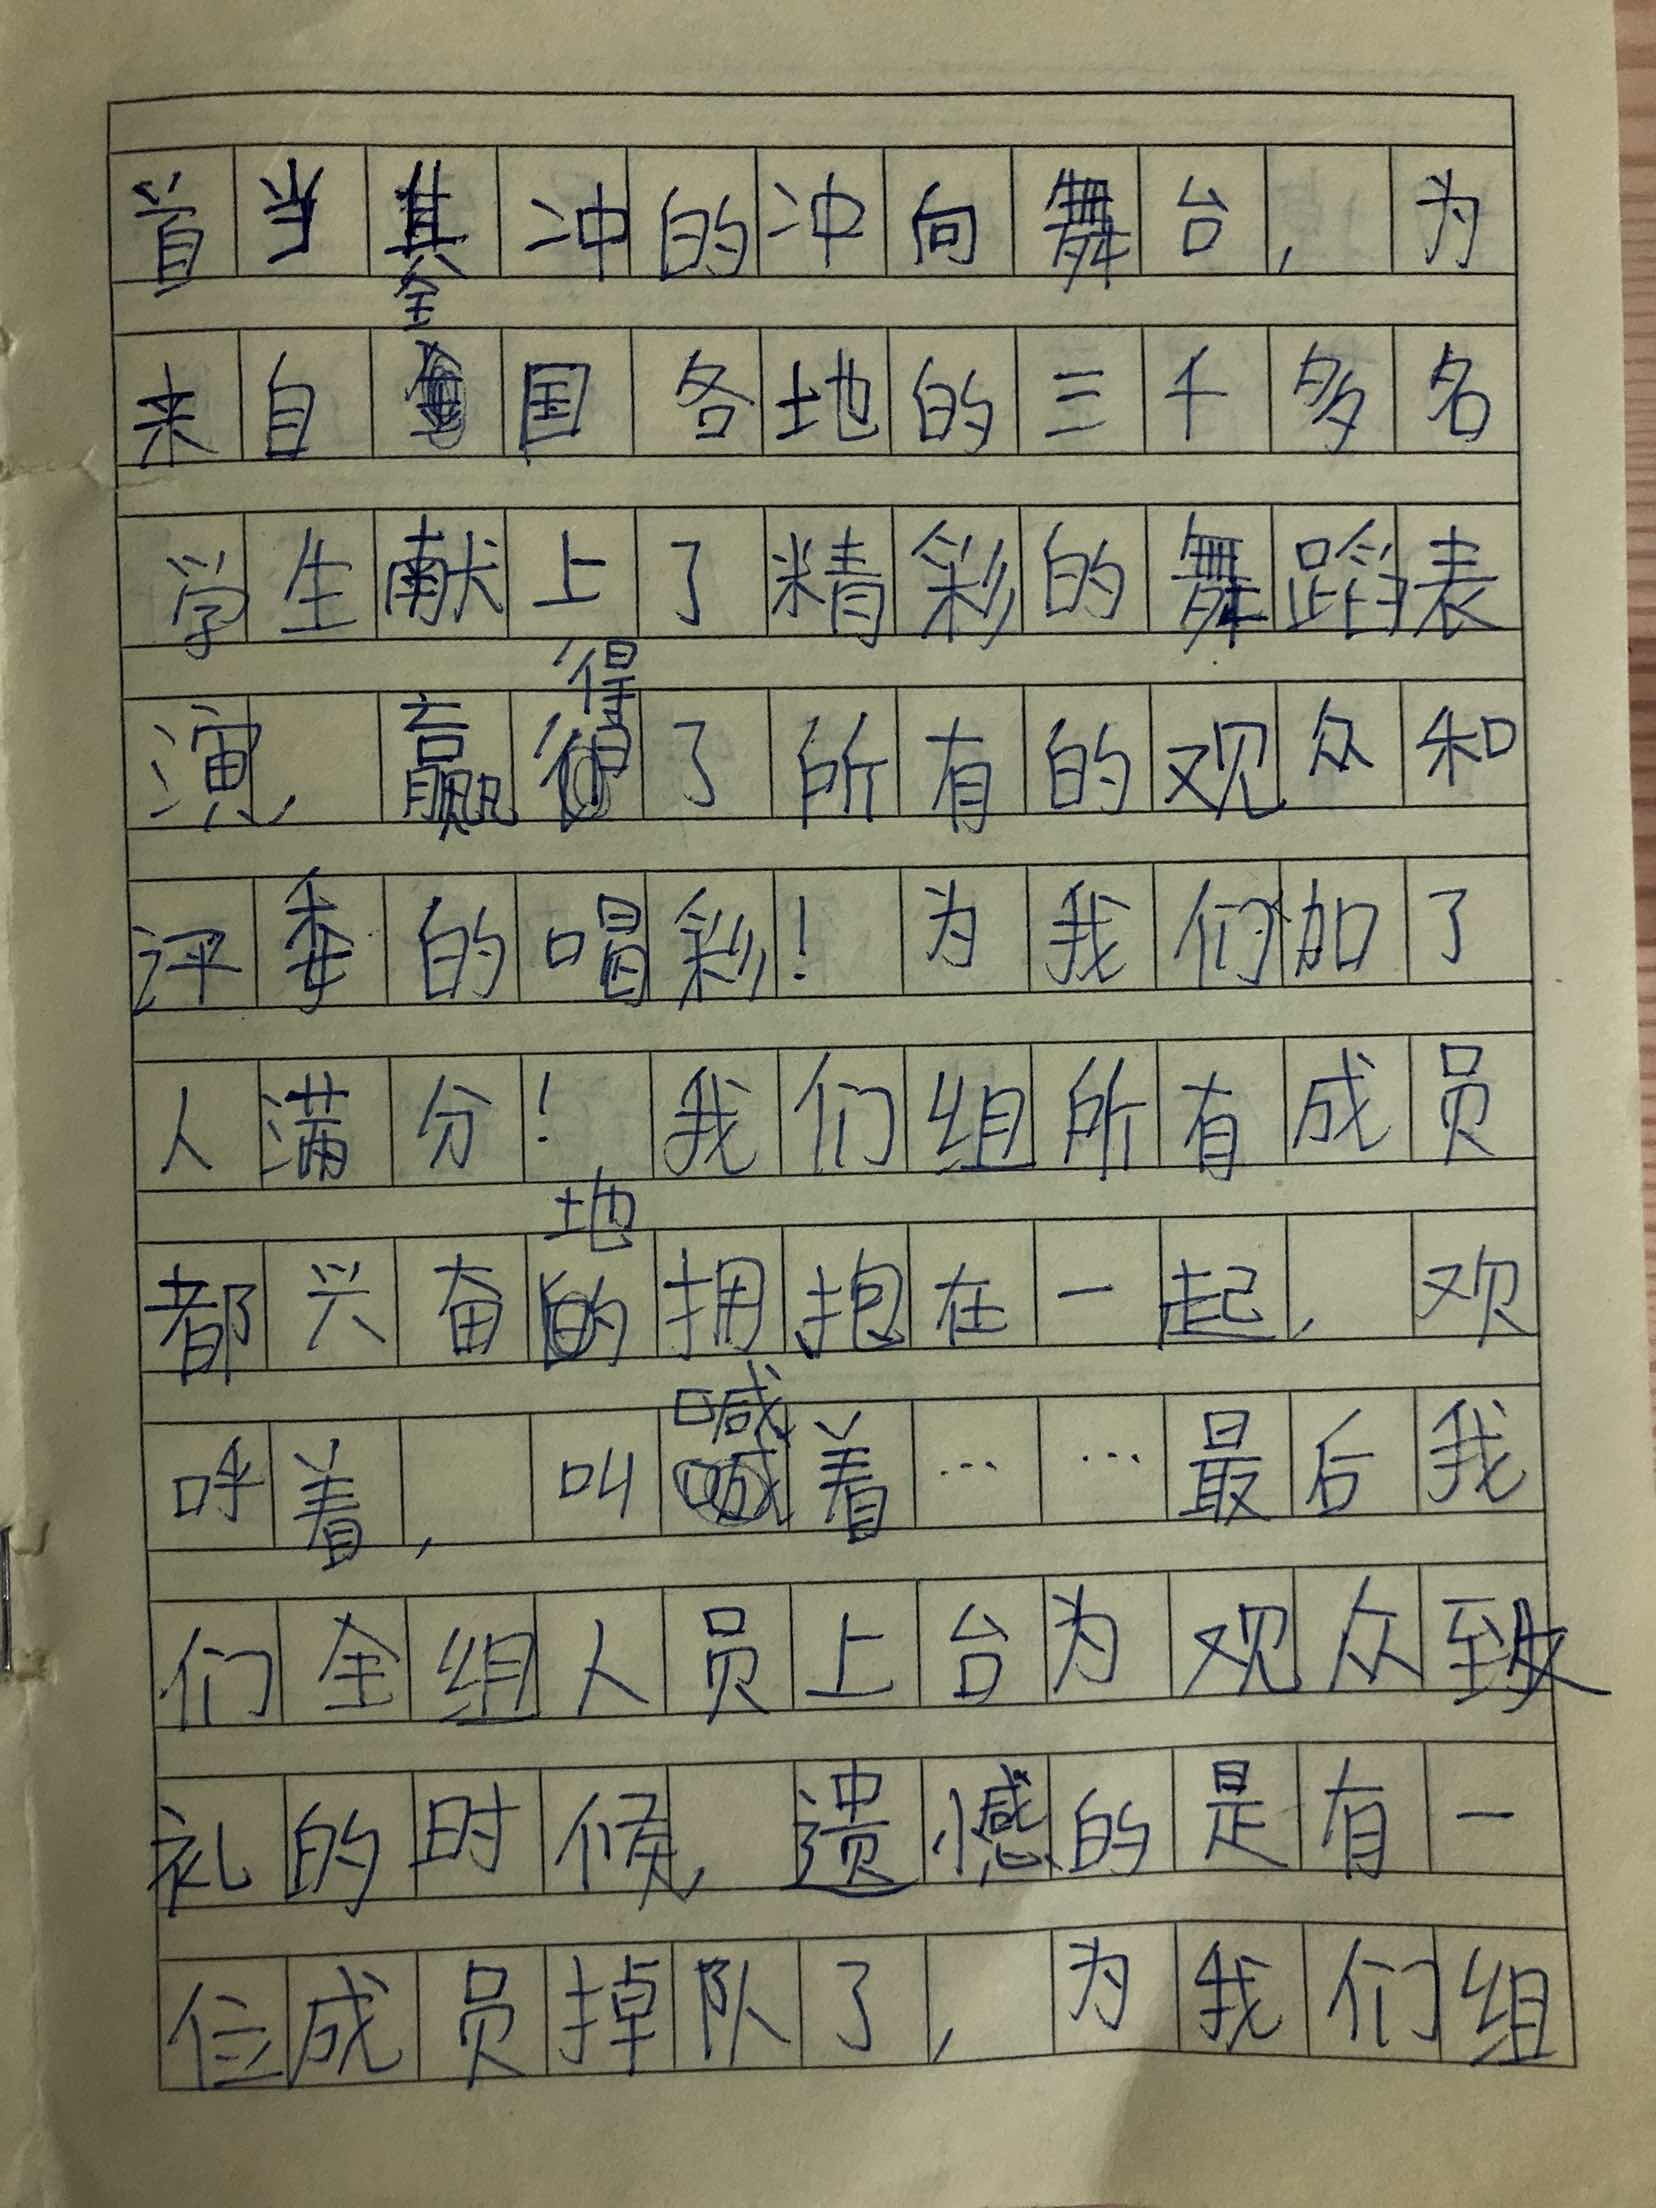 首当其冲的冲向舞台，为
来自全国各地的三千多名
学生献上了精彩的舞蹈表
演，赢得了所有的观众和
评委的喝彩！为我们加了
人满分！我们组所有成员
都兴奋地拥抱在一起，欢
呼着，叫喊着……最后我
们全组人员上台为观众致
礼的时候，遗憾的是有一
位成员掉队了，为我们组